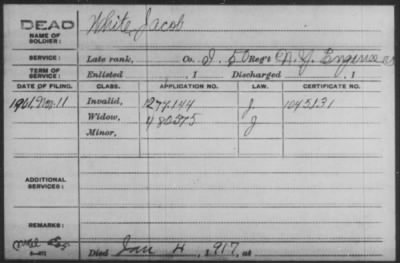 DEAD
NAME OF
SOLDIER:
White Jacob
SERVICE:
Late rank, Co. I. 50 Reg't N.Y. Engineers
TERM OF
SERVICE:
Enlisted , 1 Discharged , 1
DATE OF FILING. CLASS. APPLICATION NO. LAW. CERTIFICATE NO.
Invalid, 1277144 J 1045131
Widow, 480575 J
Minor,
ADDITIONAL
SERVICES:
REMARKS:
Died Jan 4, 1917, at